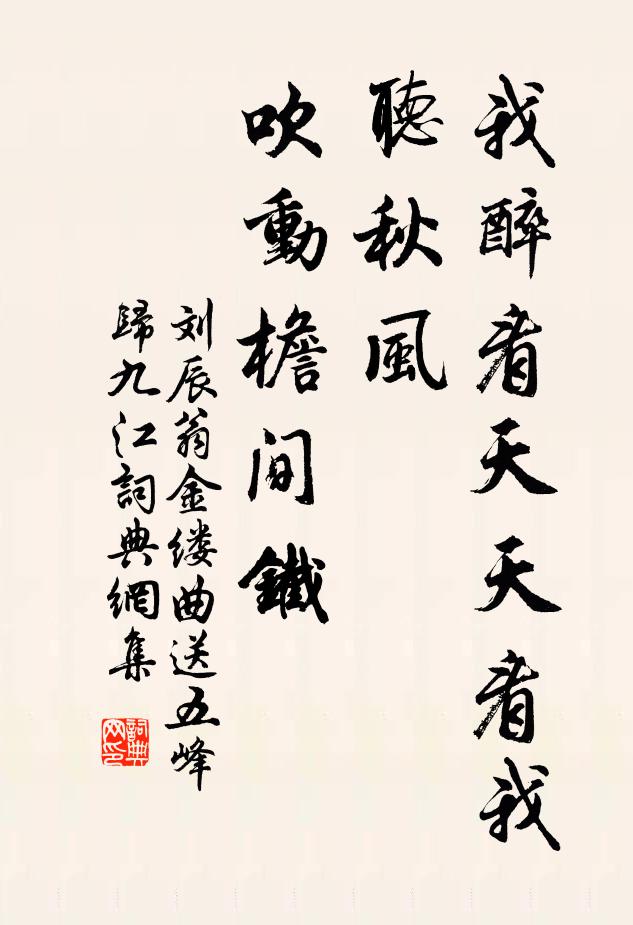 我醉看天天看我
聽秋風
吹動檐間鐵
刘辰翁金缕曲送五峰
歸九江詞典網集
詞典
网印